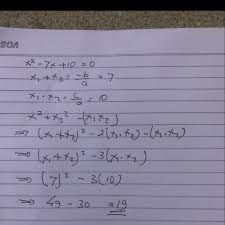 x² - 7x + 10 = 0
x₁ + x₂ = -b/a = 7
x₁ . x₂ = c/a = 10
x₁² + x₂² - (x₁x₂)
⇒ (x₁ + x₂)² - 2(x₁.x₂) - (x₁.x₂)
⇒ (x₁ + x₂)² - 3(x₁.x₂)
⇒ (7)² - 3(10)
⇒ 49 - 30 = 19